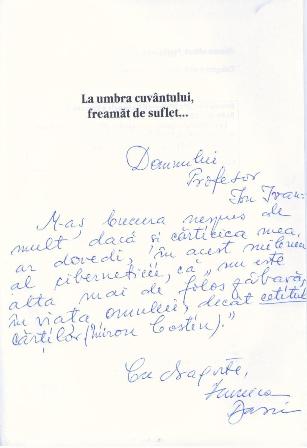 La umbra cuvântului,
freamăt de suflet...
Domnului
Profesor
Ion Ivan
M-aş bucura nespus de
mult, dacă şi cărticica mea
ar dovedi, în acest mileniu
al ciberneticii, că „nu este
alta mai de folos zăbavă,
în viaţa omului, decât cetitul
cărţilor (Miron Costin)."
Cu dragoste,